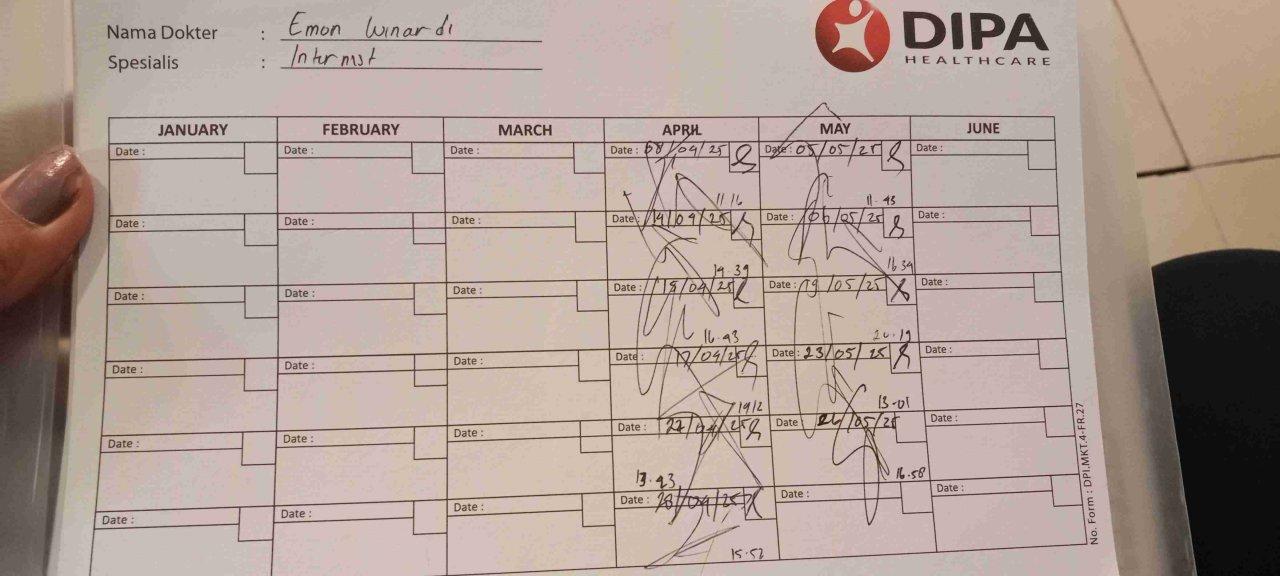 Nama Dokter : Emon Winardi
Spesialis : Internist
DIPA
HEALTHCARE
JANUARY FEBRUARY MARCH APRIL MAY JUNE
Date : Date : Date : Date : 08/04/25 Date : 05/05/25 Date :
11 16 11-43
Date : Date : Date : Date : 14/04/25 Date : 06/05/25 Date :
14-39 1634
Date : Date : Date : Date : 15/04/25 Date : 19/05/25 Date :
16-43 20-19
Date : Date : Date : Date : 17/04/25 Date : 23/05/25 Date :
1912 13-01
Date : Date : Date : Date : 22/04/25 Date : 26/05/25 Date :
16-58
Date : Date : Date : Date : 28/04/25 Date : Date :
15-52
No. Form : DPI.MKT.4-FR.27